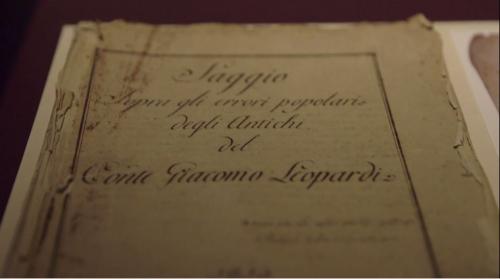 Saggio
Sopra gli errori popolari
degli Antichi
del
Conte Giacomo Leopardi